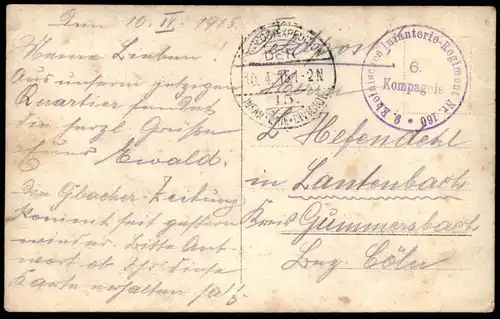 Den 10. IV. 1915.
Meine Lieben!
Aus unserm jetzigen
Quartier sendet
die herzl. Grüße
Euer Ewald.
Die Gbacher-Zeitung
kommt seit gestern
wieder. Bitte Ant-
wort ob Ihr diese
Karte erhalten
Feldpost
FELDPOSTEXPEDITION
DER
10.4.15 1-2N
15.
INFANTERIE-DIVISION
9. Rheinisches Infanterie-Regiment Nr. 160
6.
Kompagnie
Herrn
L Hefendehl
in Lantenbach
Kreis Gummersbach
Bez. Cöln